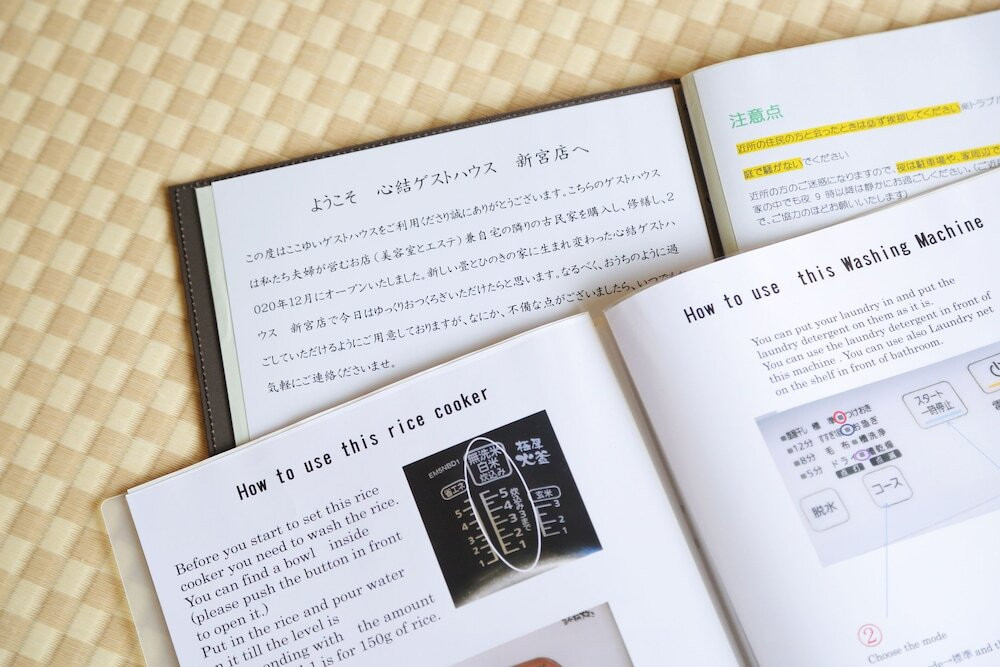 ようこそ 心結ゲストハウス 新宮店へ
この度はこころゆいゲストハウスをご利用くださり誠にありがとうございます。こちらのゲストハウス
は私たち夫婦が営むお店(美容室とエステ)兼自宅の隣りの古民家を購入し、修繕し、2
020年12月にオープンいたしました。新しい畳とひのきの家に生まれ変わった心結ゲストハ
ウス 新宮店で今日はゆっくりおつくろぎいただけたらと思います。なるべく、おうちのように過
ごしていただけるようにご用意しておりますが、なにか、不備な点がございましたら、いつでも
気軽にご連絡くださいませ。
注意点
近所の住民の方と会ったときは必ず挨拶してください
庭で騒がないでください
近所の方のご迷惑になりますので、夜は駐車場や、家周辺で
家の中でも夜 9 時以降は静かにお過ごしください。
で、ご協力のほどお願いいたします)
How to use this rice cooker
Before you start to set this rice
cooker you need to wash the rice.
You can find a bowl inside
(please push the button in front
to open it.)
Put in the rice and pour water
in it till the level is
with the amount
1 is for 150g of rice.
EM5NBD1
無洗米
白米
炊込み
極厚
火釜
省エネ
炊込み3まで
玄米
5
4
3
2
1
5
4
3
2
1
3
2
1
How to use this Washing Machine
You can put your laundry in and put the
laundry detergent on them as it is.
You can use the laundry detergent in front of
this machine . You can use also Laundry net
on the shelf in front of bathroom.
スタート
一時停止
標準 つけおき
12分 すすぎ お急ぎ
8分 毛布 槽洗浄
5分 ドライ 槽乾燥
脱水
コース
②
Choose the mode
標準 and th